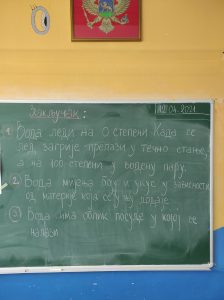 Закључак:
12.04.2021.
1. Вода леди на 0 степени. Када се
лед загрије прелази у течно стање,
а на 100 степени у водену пару.
2) Вода мијења боју и укус у зависности
од материје која се у њу додаје.
3) Вода има облик посуде у којој се
налази